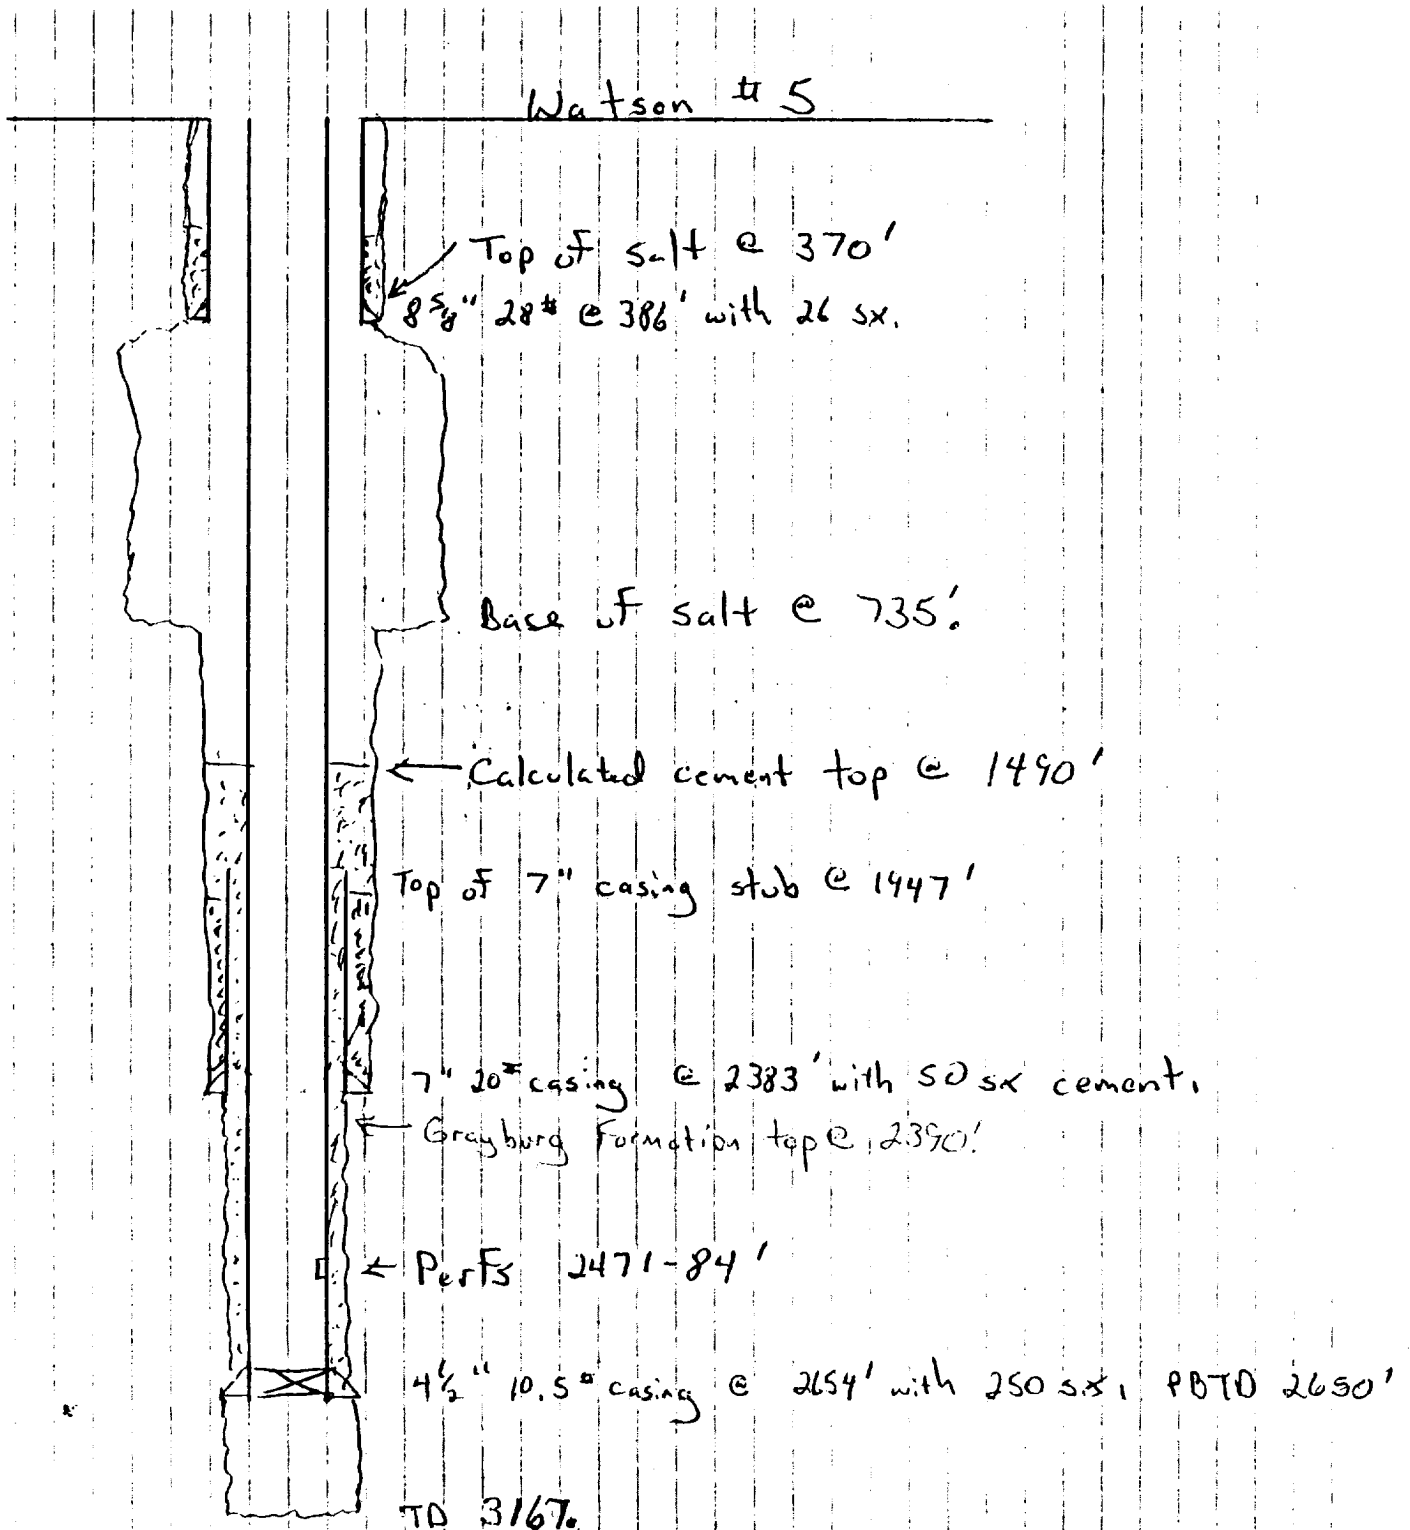 Watson # 5
Top of salt @ 370'
8 5/8" 28# @ 386' with 26 sx.
Base of salt @ 735'.
Calculated cement top @ 1490'
Top of 7" casing stub @ 1947'
7" 20# casing @ 2383' with 50 sx cement.
Grayburg Formation top @ 2390'.
Perfs 2471-84'
4 1/2" 10.5# casing @ 2654' with 250 sx. PBTD 2650'
TD 3167'.